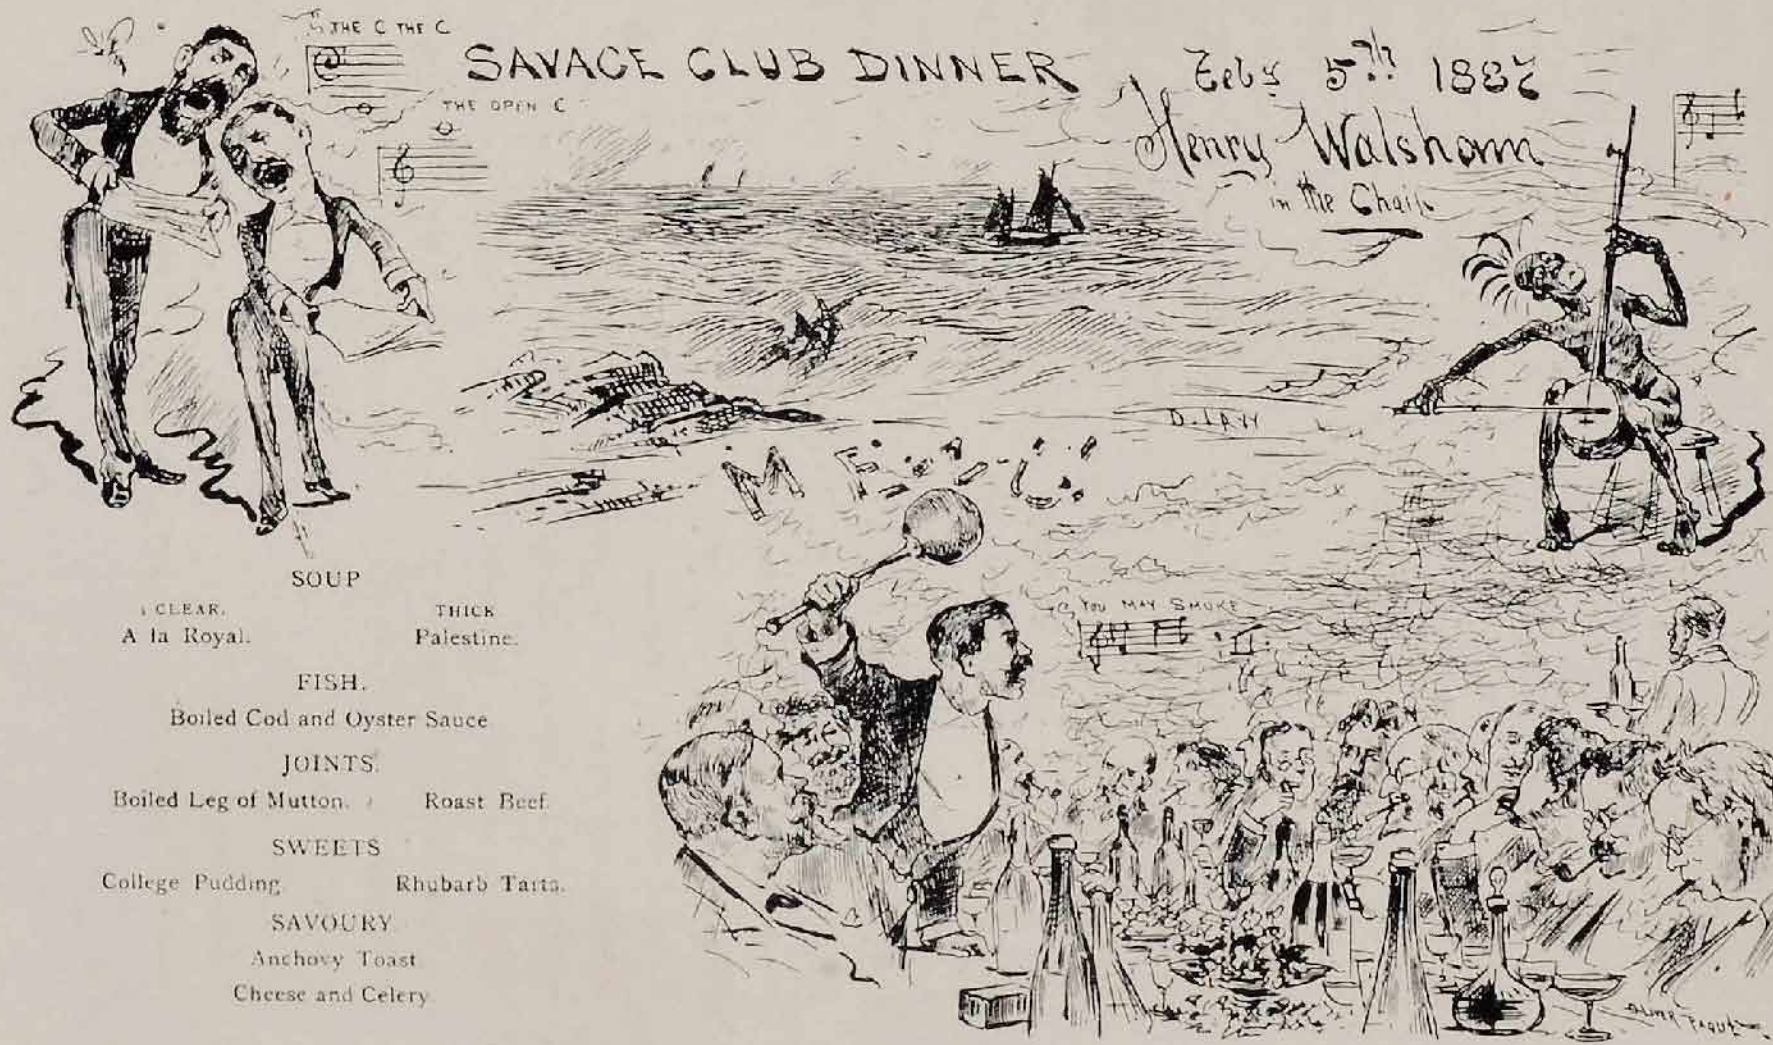 THE C THE C
SAVAGE CLUB DINNER
Feby 5th 1887
THE OPEN C
Henry Walsham
in the Chair
D. LAW
MENU
SOUP
CLEAR. THICK
A la Royal. Palestine.
FISH.
Boiled Cod and Oyster Sauce
JOINTS.
Boiled Leg of Mutton. Roast Beef.
SWEETS
College Pudding Rhubarb Tarts.
SAVOURY
Anchovy Toast
Cheese and Celery
YOU MAY SMOKE